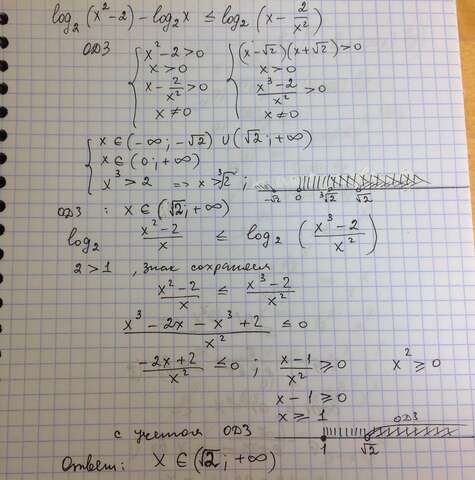 log₂(x²-2) - log₂x ≤ log₂(x - 2/x²)
ОДЗ { x²-2>0 { (x-√2)(x+√2)>0
x>0 x>0
x - 2/x² >0 (x³-2)/x² >0
x≠0 x≠0
{ x∈(-∞; -√2) ∪ (√2; +∞)
x∈(0; +∞)
x³>2 => x>∛2 ; -√2 0 ∛2 √2
ОДЗ : x∈(√2; +∞)
log₂ (x²-2)/x ≤ log₂ ((x³-2)/x²)
2>1 , знак сохраняем
(x²-2)/x ≤ (x³-2)/x²
(x³-2x-x³+2)/x² ≤0
(-2x+2)/x² ≤0 ; (x-1)/x² ≥0 x²≥0
x-1≥0
x≥1 ОДЗ
с учетом ОДЗ 1 √2
Ответ: x∈(√2; +∞)